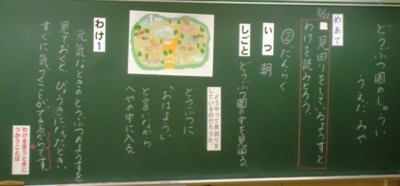 どうぶつ園のじゅうい
うえだ みや
めあて
見回りをしているようすと
わけを読みとろう。
②だんらく
いつ
朝
しごと
どうぶつ園の中を見回る。
どうやって見回りを
しているのだろうか
どうぶつに
「おはよう。」
と言いながら
へやの中に入る。
わけ1
元気なときのどうぶつのようすを
見ておくと、びょう気になったとき、
すぐに気づくことができるからです。
わけを言うときに
つかうことば